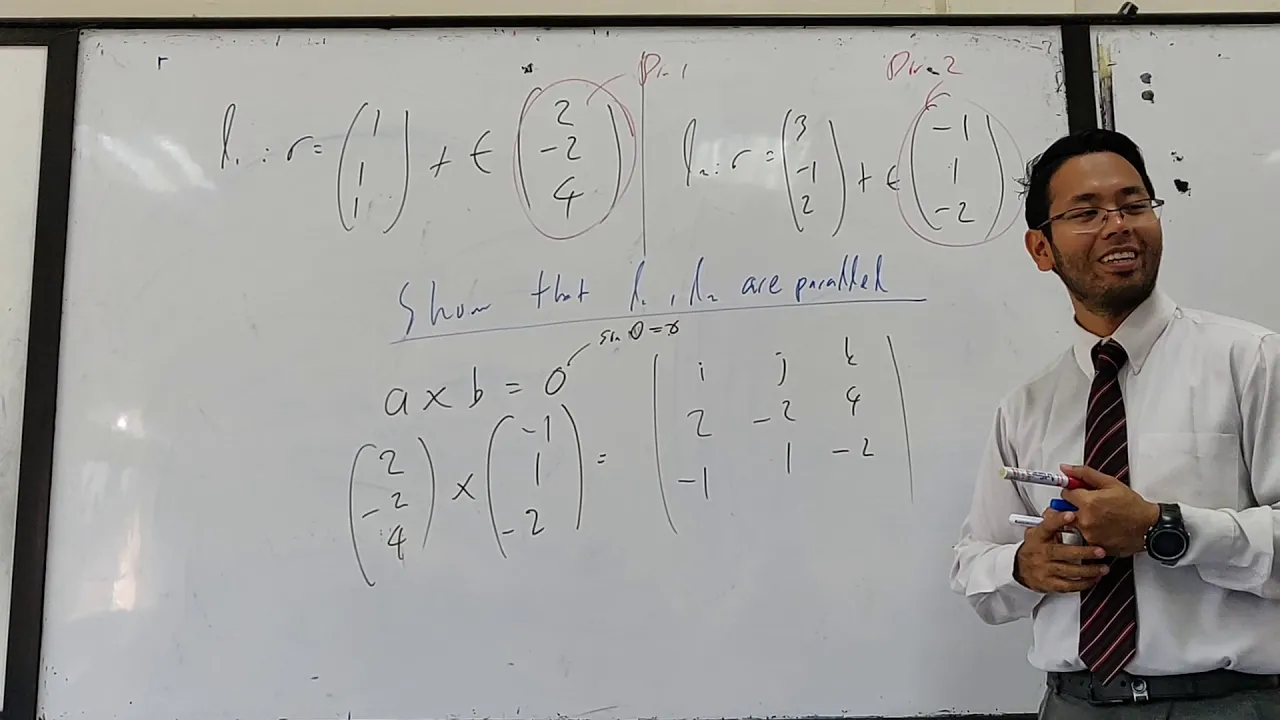 Dir 1
Dir 2
l₁ : r = (1 1 1) + t (2 -2 4)
l₂ : r = (3 -1 2) + t (-1 1 -2)
Show that l₁, l₂ are parallel
sin 0 = 0
a × b = 0
(2 -2 4) × (-1 1 -2) = | i j k
2 -2 4
-1 1 -2 |